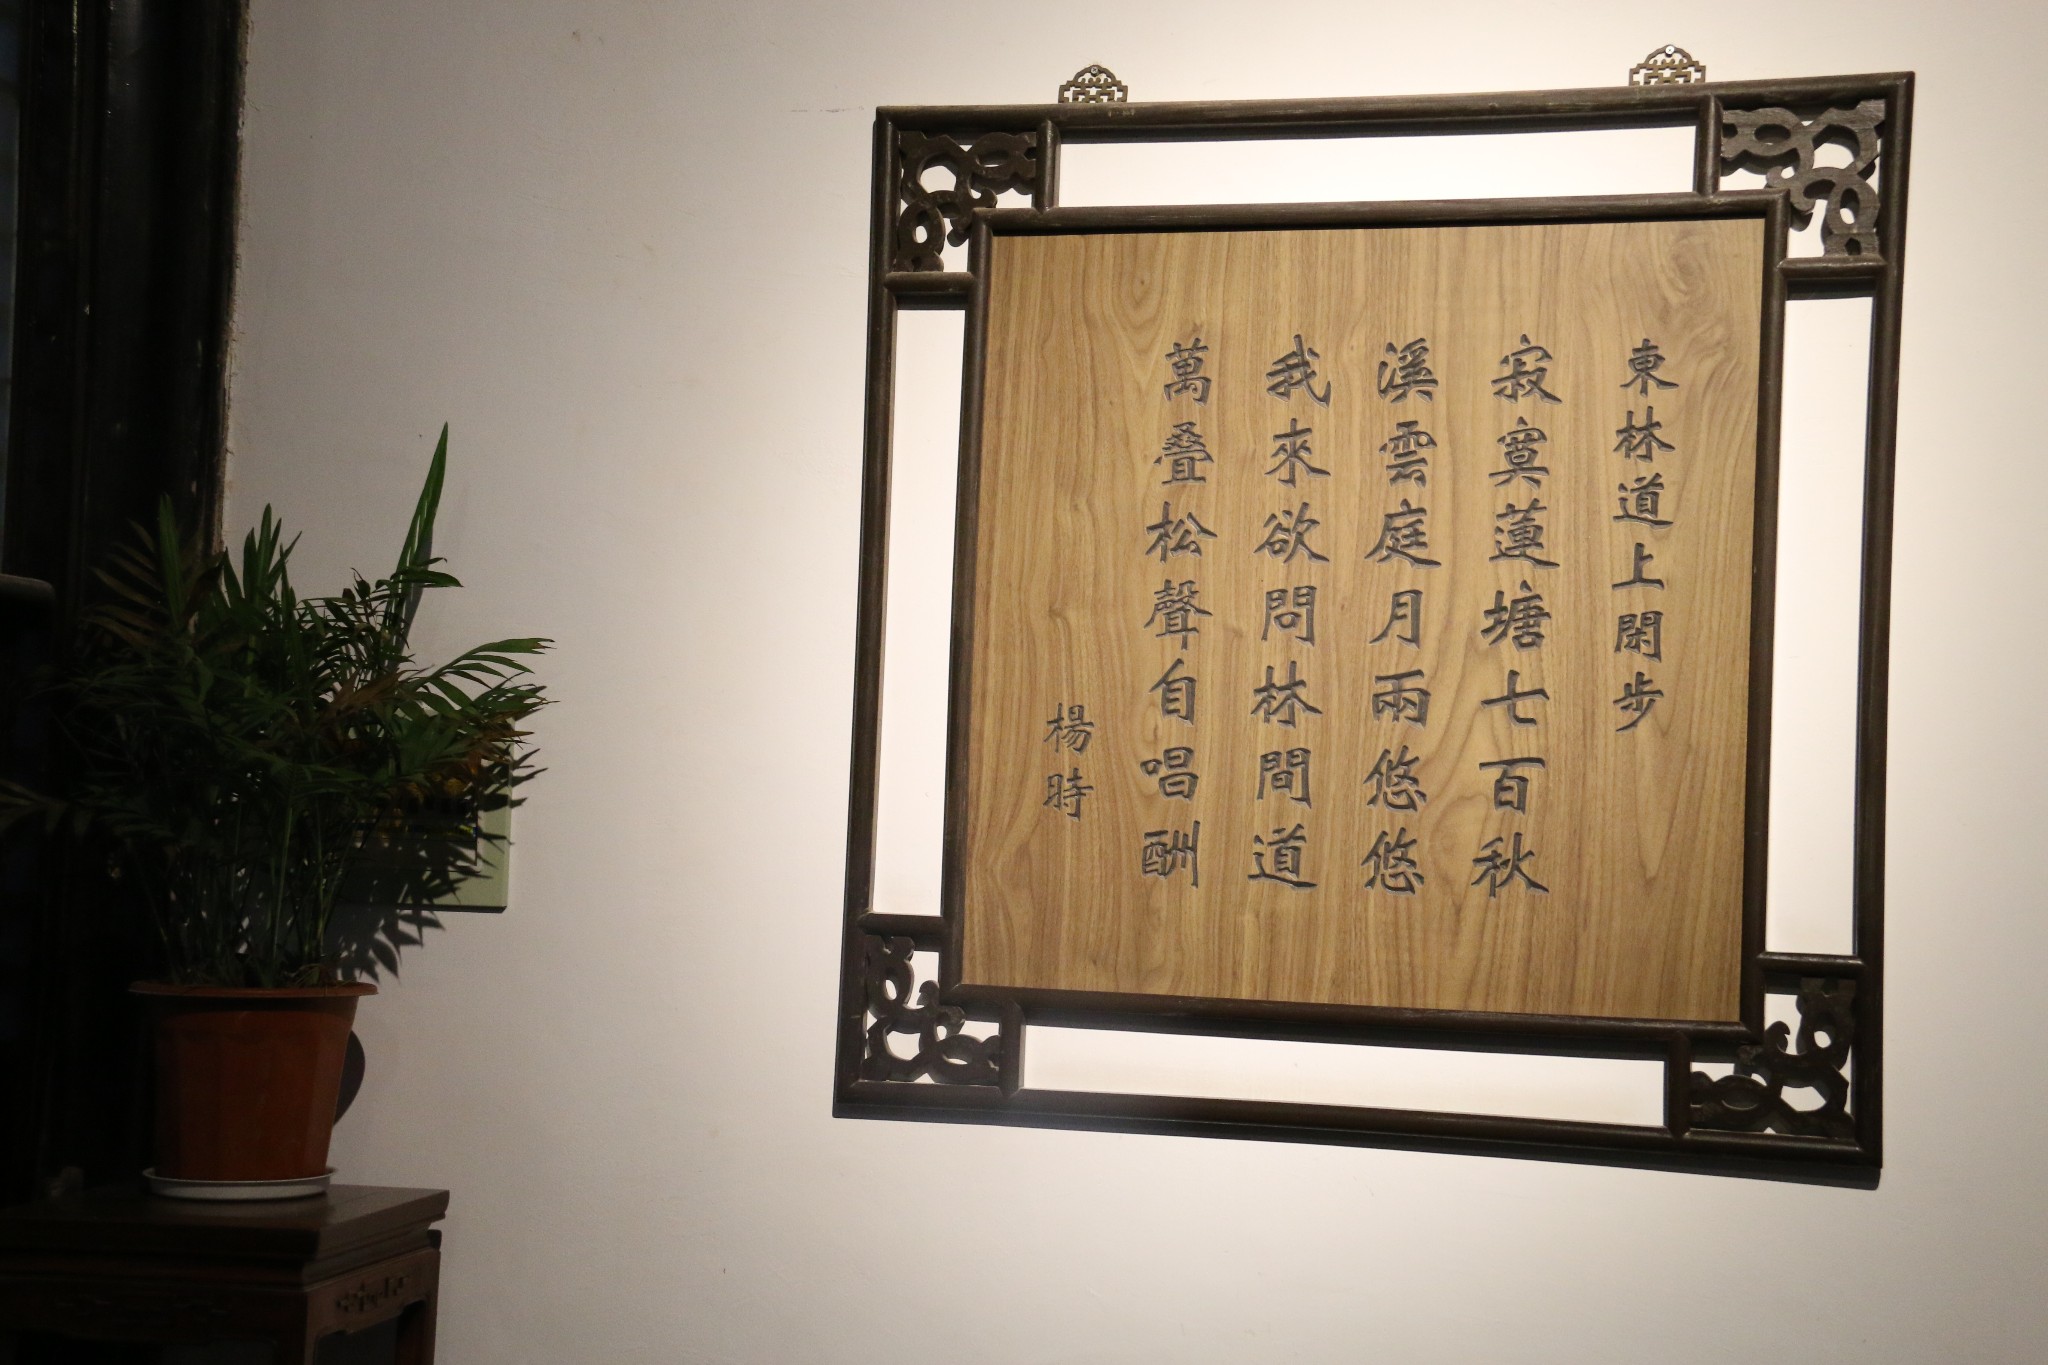 東林道上閑步
寂寞蓮塘七百秋
溪雲庭月兩悠悠
我來欲問林間道
萬叠松聲自唱酬
楊時